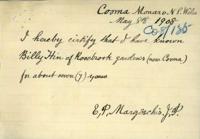 Cooma Monaro N.S. Wales
May 8th 1908
Co8/185
I hereby certify that I have known
Billy Hin of Rosebrook gardens (near Cooma)
for about seven (7) years
E.P. Margoschis J.P.